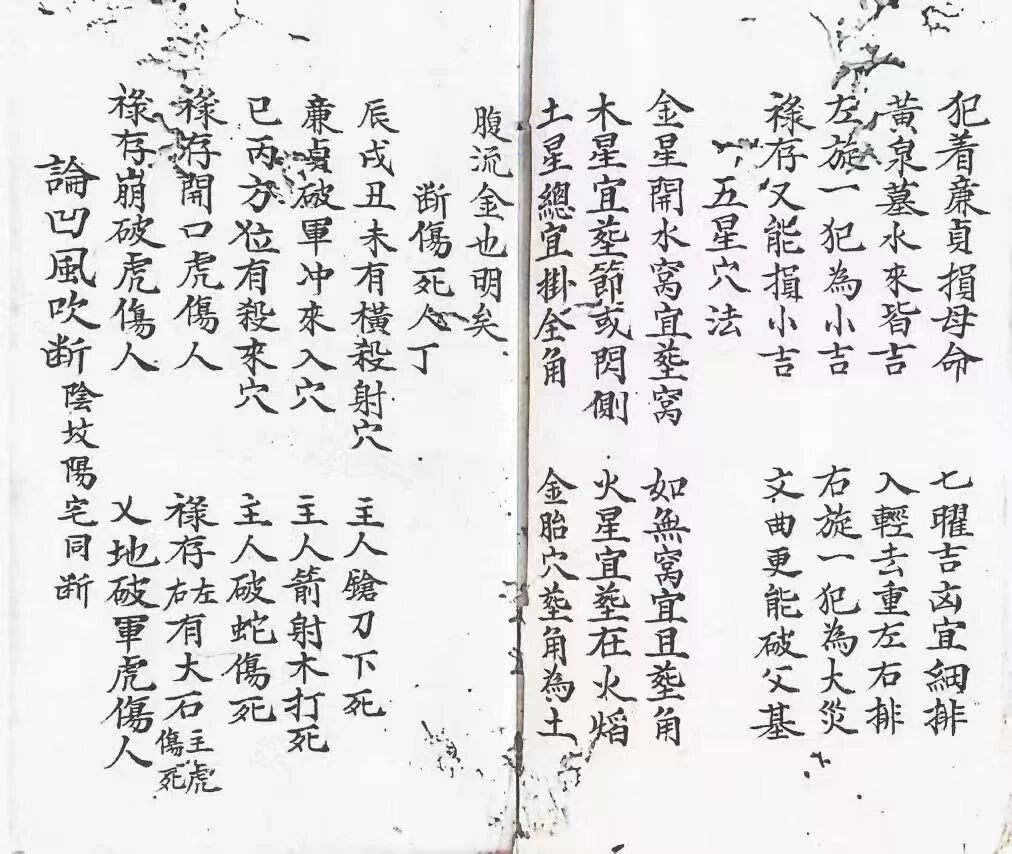 犯着廉貞損母命　七曜吉凶宜細排
黃泉墓水來皆吉　入輕去重左右排
左旋一犯為小吉　右旋一犯為大災
祿存又能損小吉　文曲更能破父基
五星穴法
金星開水窩宜塟窩　如無窩宜且塟角
木星宜塟節或閃側　火星宜塟在火焰
土星總宜掛全角　金胎穴塟角為土
腹流金也明矣
断傷死人丁
辰戌丑未有橫殺射穴　主人鎗刀下死
廉貞破軍冲來入穴　主人箭射木打死
巳丙方位有殺來穴　主人破蛇傷死
祿存開口虎傷人　祿存右左有大石主虎傷死
祿存崩破虎傷人　乂地破軍虎傷人
論凹風吹断陰坟陽宅同断